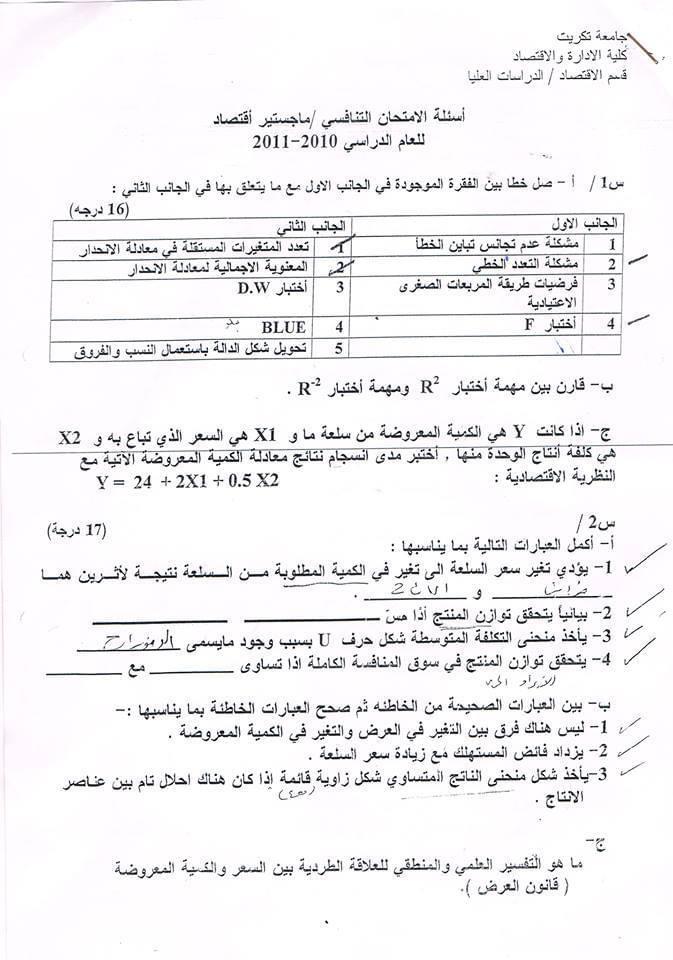 جامعة تكريت
كلية الادارة والاقتصاد
قسم الاقتصاد / الدراسات العليا
أسئلة الامتحان التنافسي /ماجستير أقتصاد
للعام الدراسي 2010-2011
س1/ أ - صل خطا بين الفقرة الموجودة في الجانب الاول مع ما يتعلق بها في الجانب الثاني :
(16 درجه)
الجانب الاول الجانب الثاني
1 مشكلة عدم تجانس تباين الخطأ 1 تعدد المتغيرات المستقلة في معادلة الانحدار
2 مشكلة التعدد الخطي 2 المعنوية الاجمالية لمعادلة الانحدار
3 فرضيات طريقة المربعات الصغرى 3 أختبار D.W
الاعتيادية
4 أختبار F 4 BLUE
5 تحويل شكل الدالة باستعمال النسب والفروق
ب- قارن بين مهمة أختبار R² ومهمة أختبار R⁻² .
ج- اذا كانت Y هي الكمية المعروضة من سلعة ما و X1 هي السعر الذي تباع به و X2
هي كلفة أنتاج الوحدة منها , أختبر مدى انسجام نتائج معادلة الكمية المعروضة الآتية مع
النظرية الاقتصادية : Y = 24 + 2X1 + 0.5 X2
س2/
(17 درجة)
أ- أكمل العبارات التالية بما يناسبها :
1- يؤدي تغير سعر السلعة الى تغير في الكمية المطلوبة من السلعة نتيجة لأثرين هما
و .
2- بيانياً يتحقق توازن المنتج أذا مسّ
3- يأخذ منحنى التكلفة المتوسطة شكل حرف U بسبب وجود مايسمى
4- يتحقق توازن المنتج في سوق المنافسة الكاملة اذا تساوى مع
ب- بين العبارات الصحيحة من الخاطئه ثم صحح العبارات الخاطئة بما يناسبها :-
1- ليس هناك فرق بين التغير في العرض والتغير في الكمية المعروضة .
2- يزداد فائض المستهلك مع زيادة سعر السلعة .
3-يأخذ شكل منحنى الناتج المتساوي شكل زاوية قائمة إذا كان هناك احلال تام بين عناصر
الانتاج .
ج-
ما هو التفسير العلمي والمنطقي للعلاقة الطردية بين السعر والكمية المعروضة
( قانون العرض ).